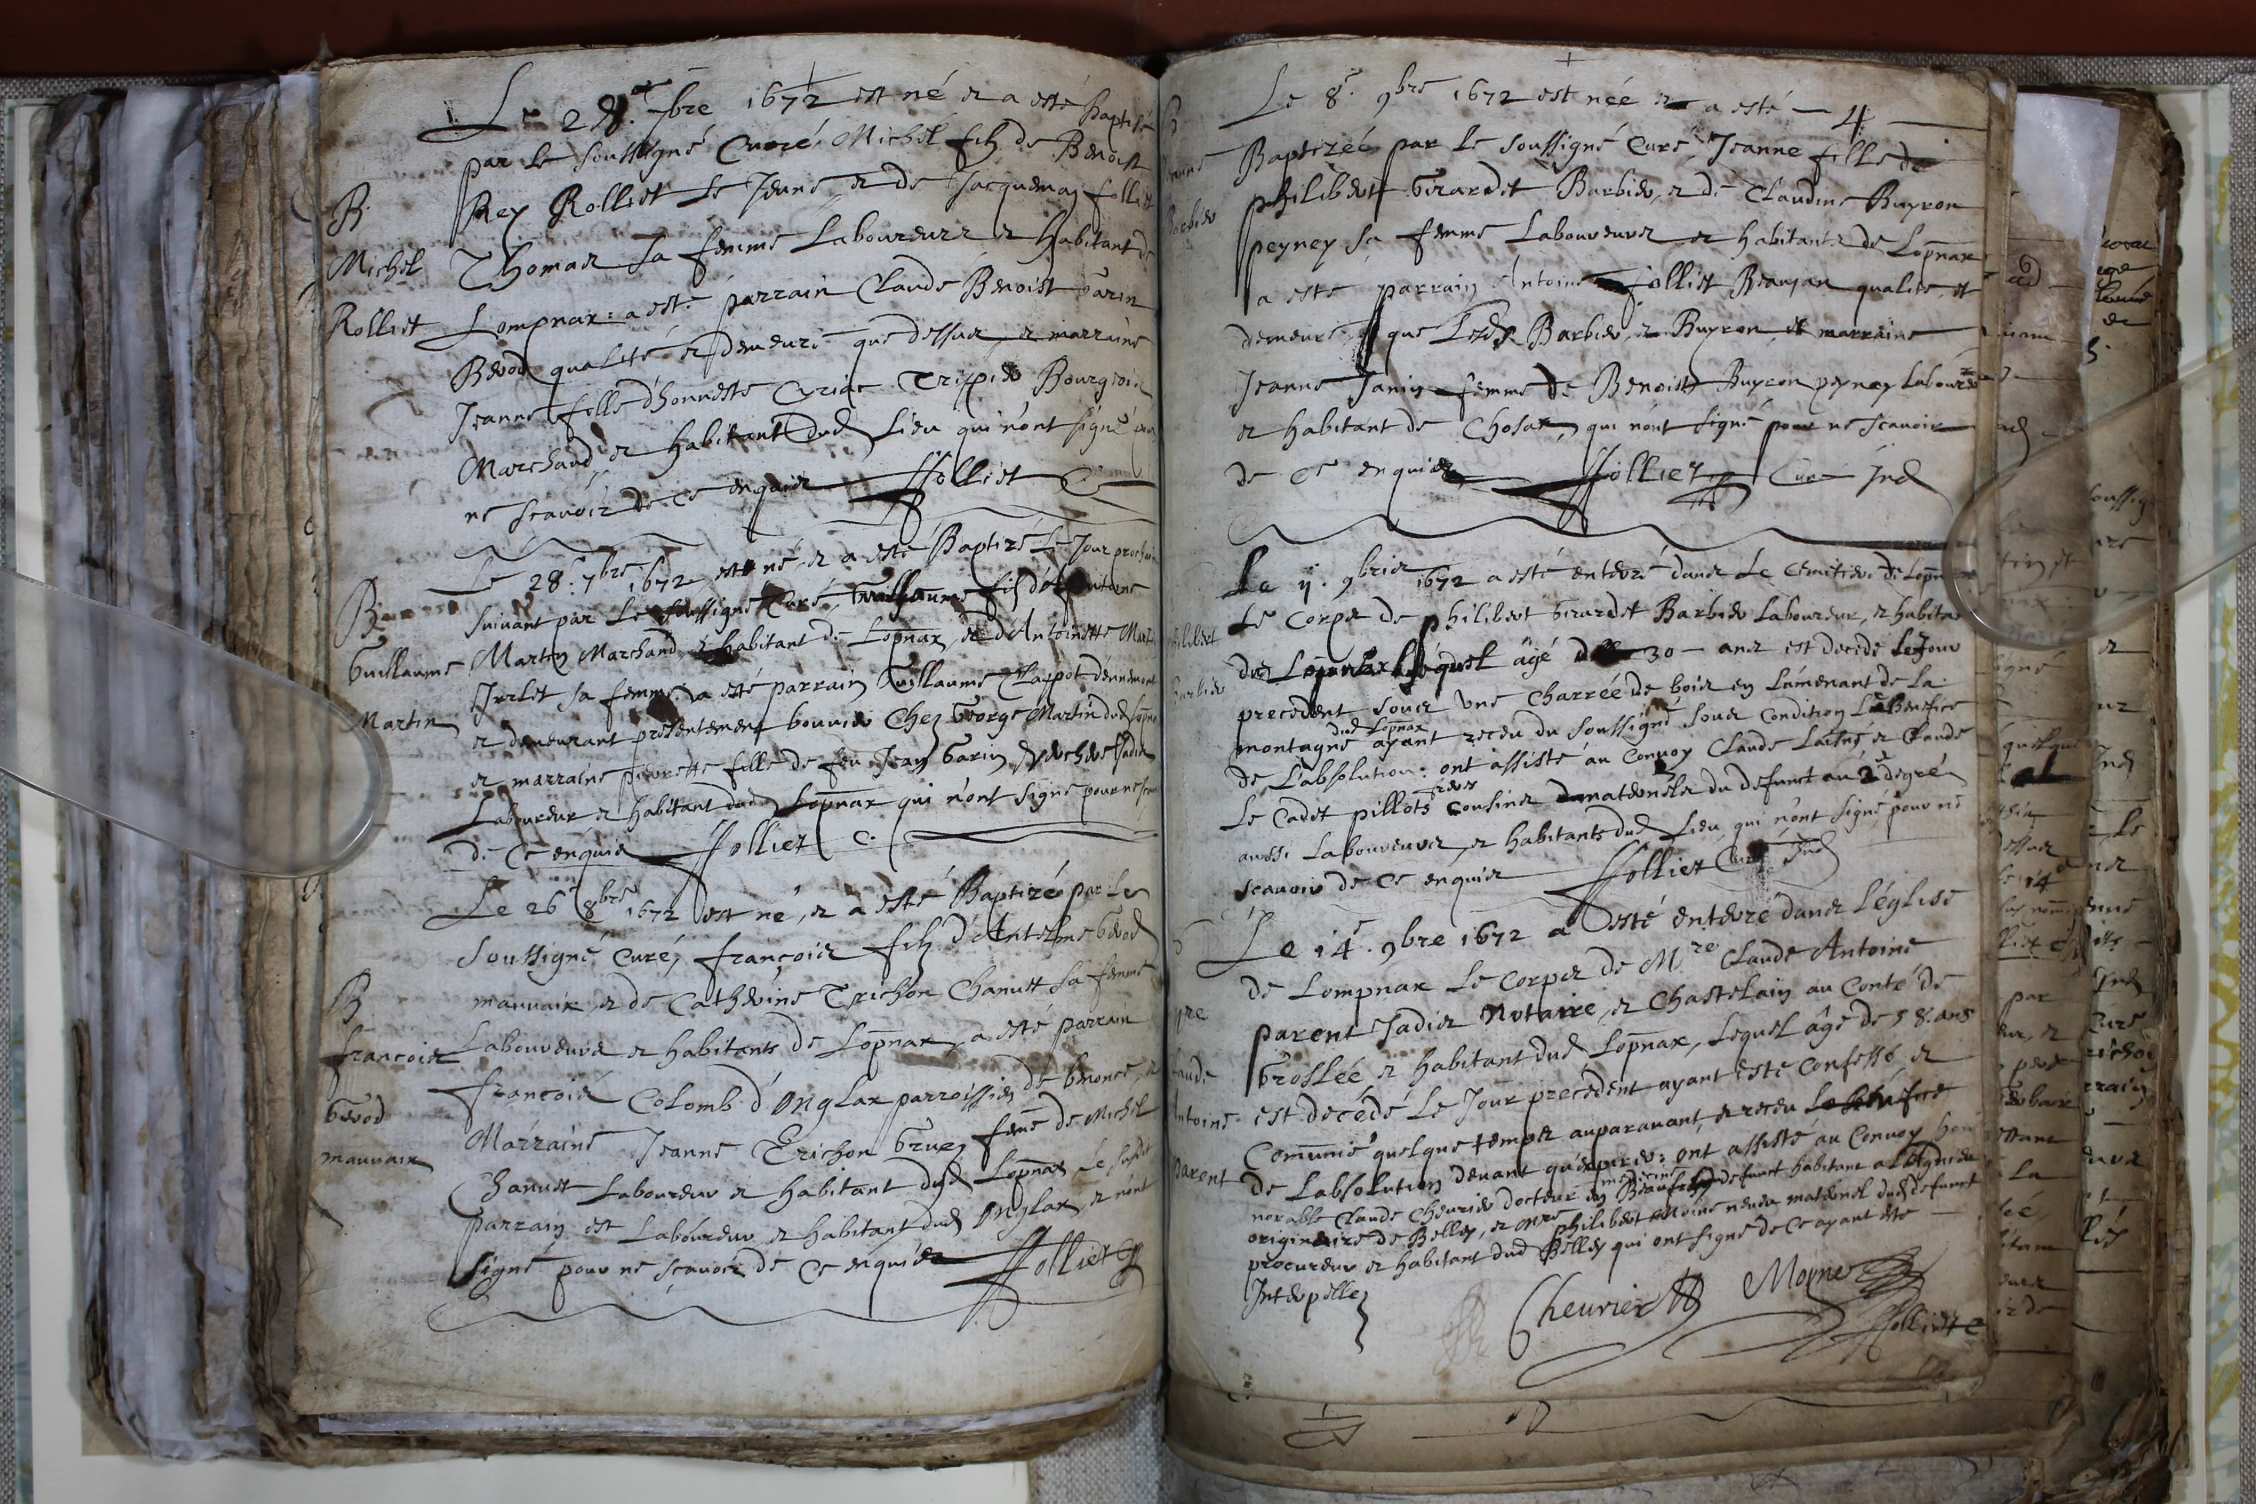 Le 28. 7bre 1672 est né et a esté Baptisé
par le soussigné Curé, Michel filz de Benoist
B.
Rey Rolliet le Jeune, et de Jacquemaz folliet
Michel
Thomas sa femme Laboureurs et habitant de
Rolliet
Lompnax: a esté parrain Claude Benoist Garin
qualité et demeure que dessus, et marraine
Jeanne fille d'honneste Cyriac Trippier Bourgeois
Marchand, et habitant dud Lieu qui n'ont signé pour
ne scavoir de ce enquis folliet C
Le 28. 7bre 1672 est né et a esté Baptizé le Jour prochain
B
suivant par le soussigné Curé, Guillaume filz d'Antoine
Guillaume
Martin Marchand et habitant de Lopnax, et d'Antoinette Martin
sa femme, a esté parrain Guillaume Clappot
Martin
et demeurant presentement bouvier Chez George Martin dud Lopnax
et marraine pierrette fille de feu Jean Garin
Laboureur et habitant dud Lopnax qui n'ont signé pour ne scavoir
de ce enquis folliet C.
Le 26 8bre 1672 est né, et a esté Baptizé par le
soussigné Curé, françois filz d'Antelme Gevod
B
mauvais, et de Catherine Trichon Chanutt sa femme
francois
Laboureurs et habitants de Lopnax, a esté parrain
françois Colomb d'Onglax parroissien de benonce, et
Gevod
Marraine Jeanne Trichon femē de Michel
mauvais
Chanutt Laboureur et habitant dud Lopnax Le susdit
parrain est Laboureur et habitant dud Onglax, et n'ont
signé pour ne scavoir de ce enquis folliet C
Le 8. 9bre 1672 est née et a esté
4
Baptizée par le soussigné Curé, Jeanne fille de
philibert Girardet Barbier, et de Claudine Buyron
Barbier
peyney sa femme Laboureurs et habitants de Lopnax
a esté parrain Antoine folliet Beaujan qualité, et
demeure que Lesd. Barbier, et Buyron, et marraine
Jeanne Janin femme de Benoist Buyron peyney Laboureur
et habitant de Chosax, qui n'ont signé pour ne scavoir
de ce enquis folliet Curé Ind
Le 11. 9bris 1672 a esté enterré dans le Cemitiere de Lopnax
Le Corps de philibert Girardet Barbier Laboureur, et habitant
philibert
dud Lopnax lequel âgé de 30 ans est decedé le Jour
Barbier
precedent sous une Charrée de bois en L'amenant de La
dud Lopnax
montagne ayant receu du soussigné sous condition Le Benefice
de L'absolution: ont assisté au Convoy Claude Laisné et Claude
Le Cadet pillots Cousins maternels du defunct au 2e degré
aussi Laboureurs, et habitants dud Lieu, qui n'ont signé pour ne
scavoir de ce enquis folliet Curé Ind
Le 14. 9bre 1672 a esté enterré dans L'église
de Lompnax Le Corps de M.re Claude Antoine
parent Jadis Notaire, et Chastelain au Conté de
Groslée et habitant dud Lopnax, Lequel âgé de 58. ans
Claude
est decedé Le Jour precedent ayant esté Confessé et
Antoine
Comunié quelque temps auparavant, et receu Le bénéfice
parent
de Labsolution devant qu'expirer: ont assisté au Convoy hon
norable Claude Cheurier docteur en medicine defunct habitant a
originaire de Belley, et philibert Moine neveu maternel dud defunct
procureur et habitant dud Belley qui ont signé de ce ayant esté
Interpellez
Cheurier Moyne
folliet C